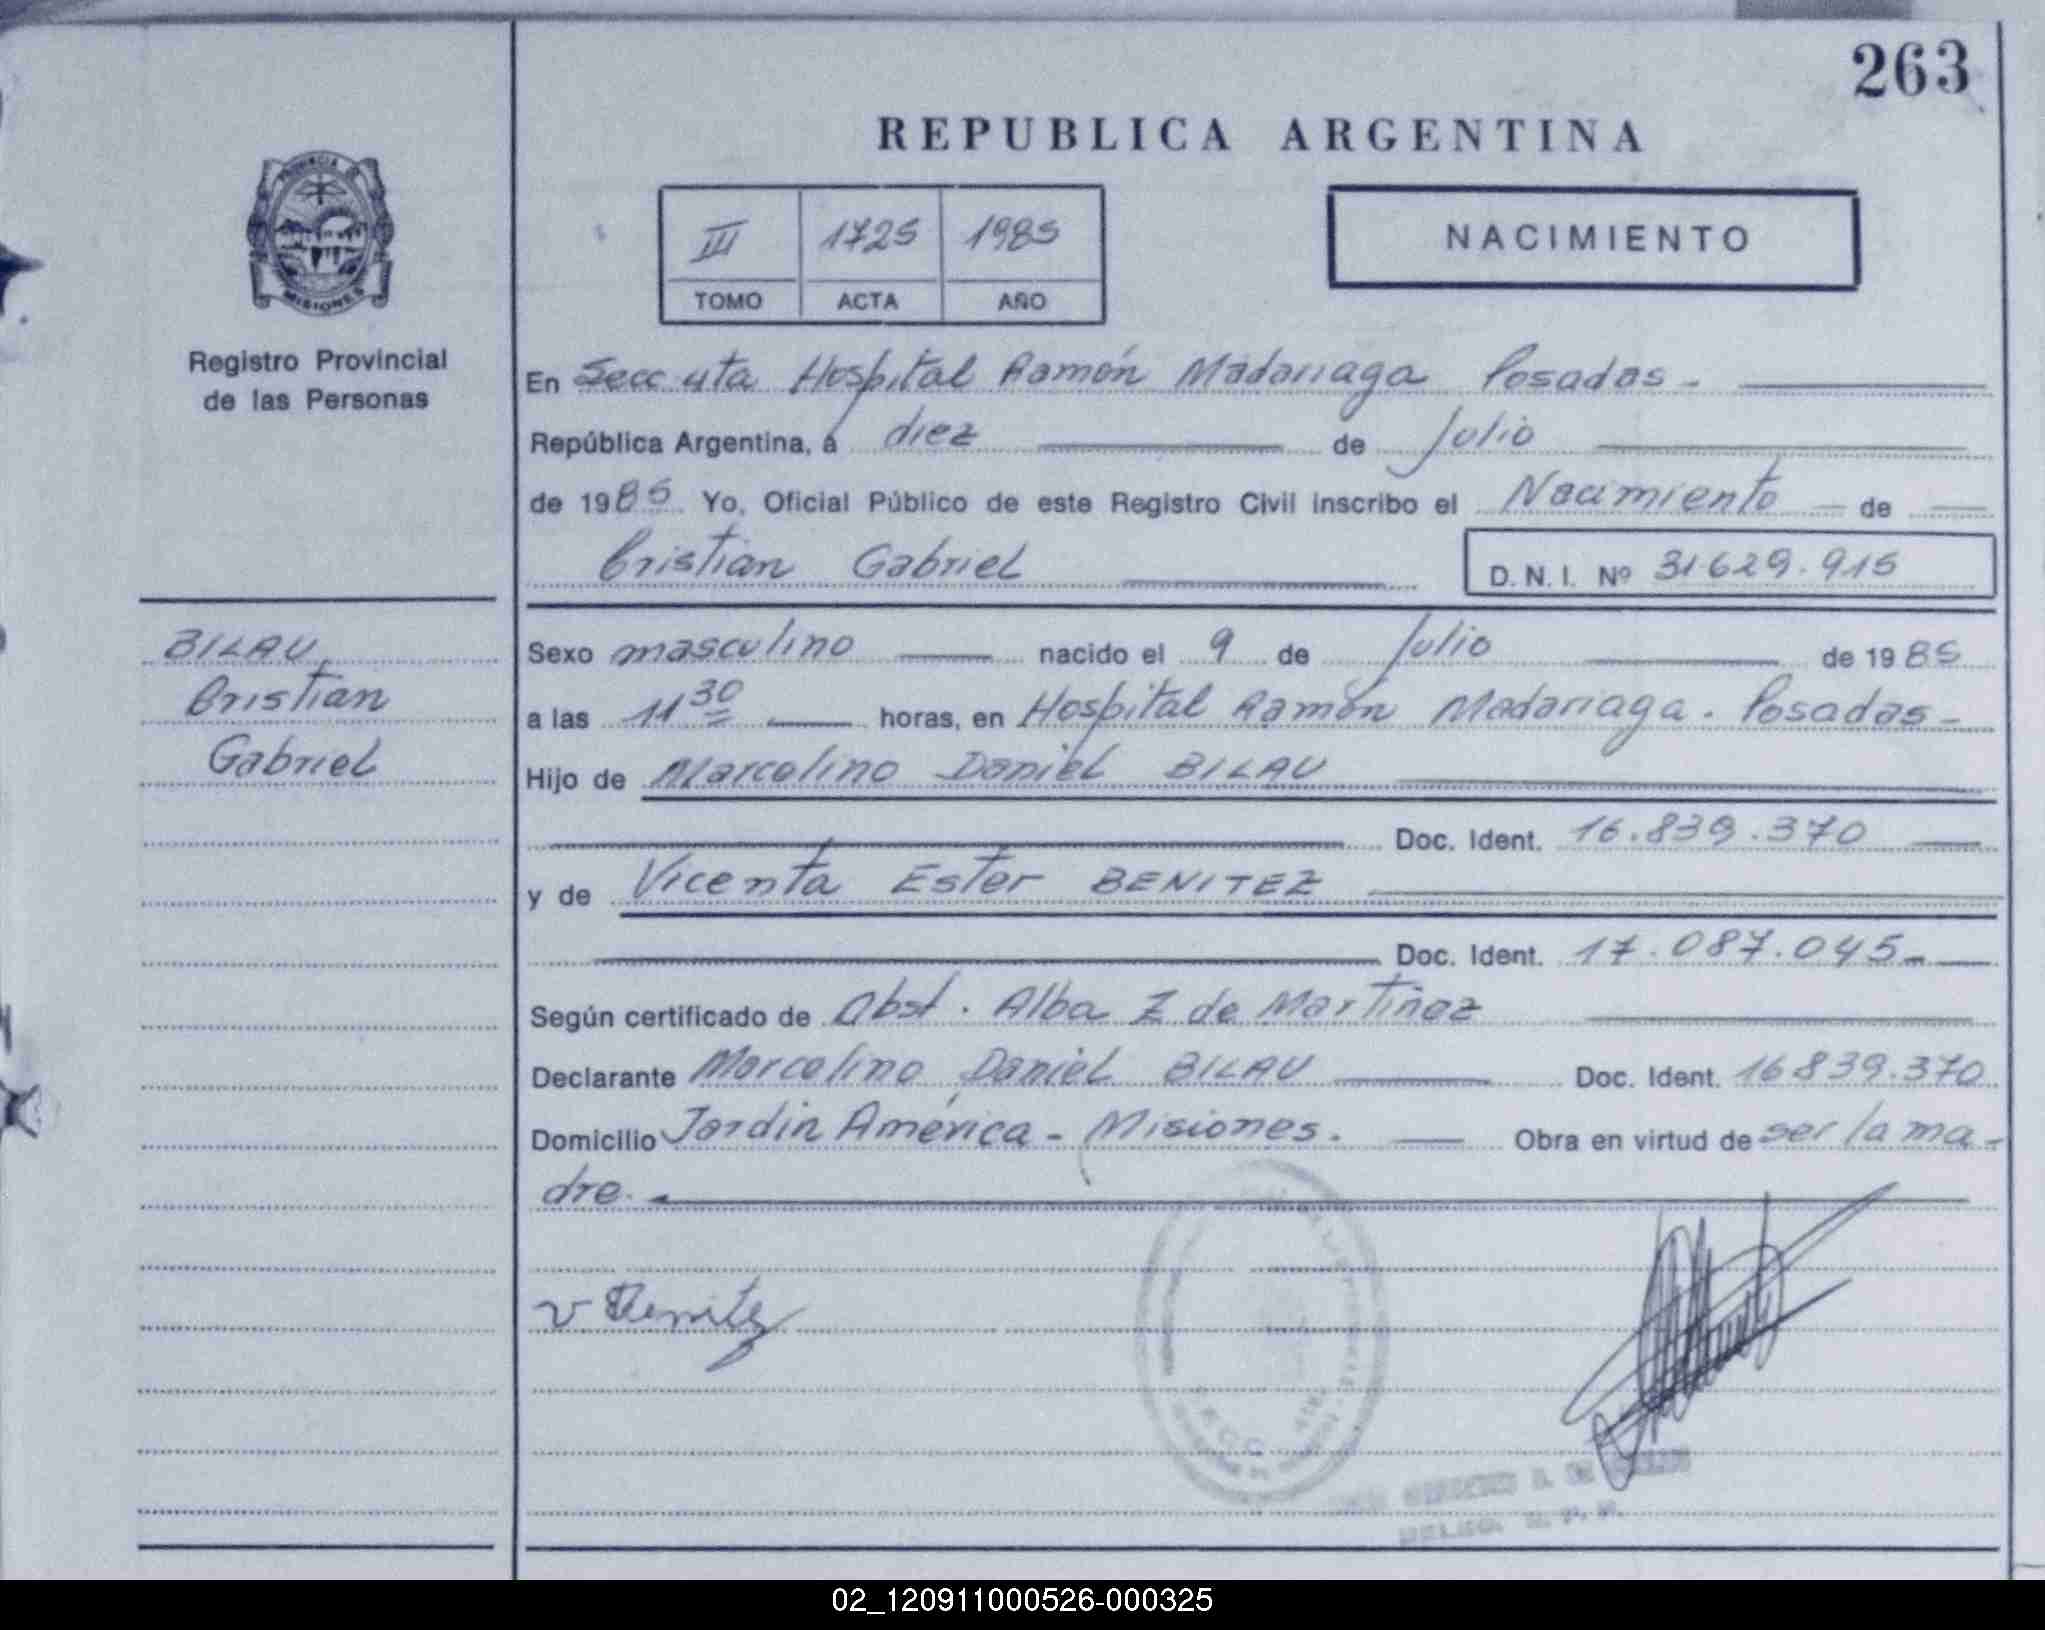 263
REPUBLICA ARGENTINA
PROVINCIA DE
MISIONES
Registro Provincial
de las Personas
III 1725 1985
TOMO ACTA AÑO
NACIMIENTO
En Secc uta Hospital Ramón Madariaga Posadas -
República Argentina, a diez de Julio
de 1985 Yo, Oficial Público de este Registro Civil inscribo el Nacimiento de
Cristian Gabriel D. N. I. Nº 31.629.915
BILAU
Cristian
Gabriel
Sexo masculino nacido el 9 de Julio de 1985
a las 11 30 horas, en Hospital Ramón Madariaga. Posadas-
Hijo de Marcelino Daniel BILAU
Doc. Ident. 16.839.370
y de Vicenta Ester BENITEZ
Doc. Ident. 17.087.045-
Según certificado de Obst. Alba Z de Martiñez
Declarante Marcelino Daniel BILAU Doc. Ident. 16839.370
Domicilio Jardin América - Misiones. Obra en virtud de ser la ma-
dre.
v Benitez
02_120911000526-000325